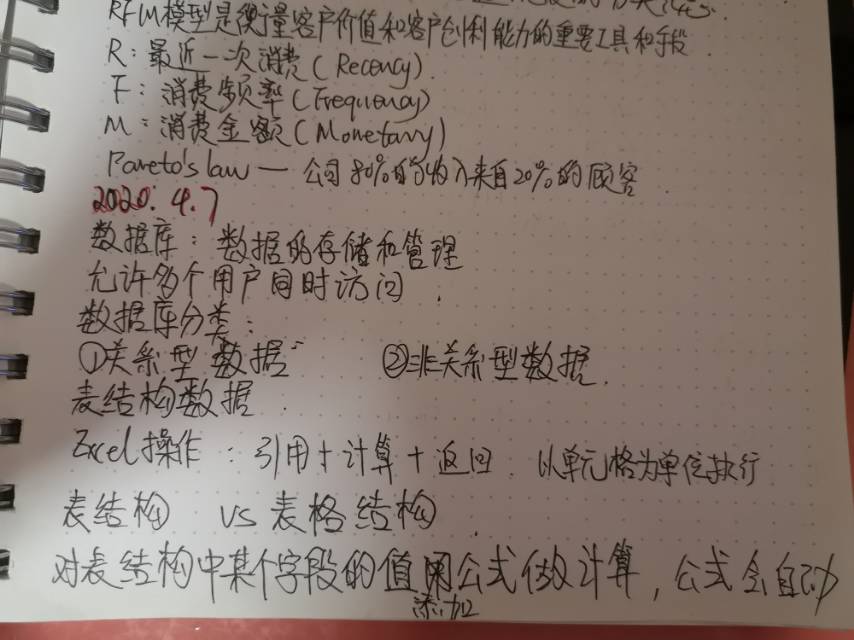 RFM模型是衡量客户价值和客户创利能力的重要工具和手段
R：最近一次消费(Recency)
F：消费频率(Frequency)
M：消费金额(Monetary)
Pareto's law — 公司80%的收入来自20%的顾客
2020.4.7
数据库：数据的存储和管理
允许多个用户同时访问.
数据库分类：
①关系型数据 ②非关系型数据.
表结构数据.
Excel操作：引用+计算+返回. 以单元格为单位执行
表结构 vs 表格结构.
对表结构中某个字段的值用公式做计算，公式会自动
添加